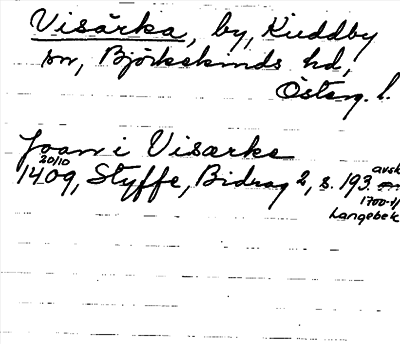 Visärka, by, Kuddby
sn, Björkekinds hd,
Österg. l.
Joan i Visarke
20/10
1409, Styffe, Bidrag 2, s. 193.
avsk
1700-t/
Langebek